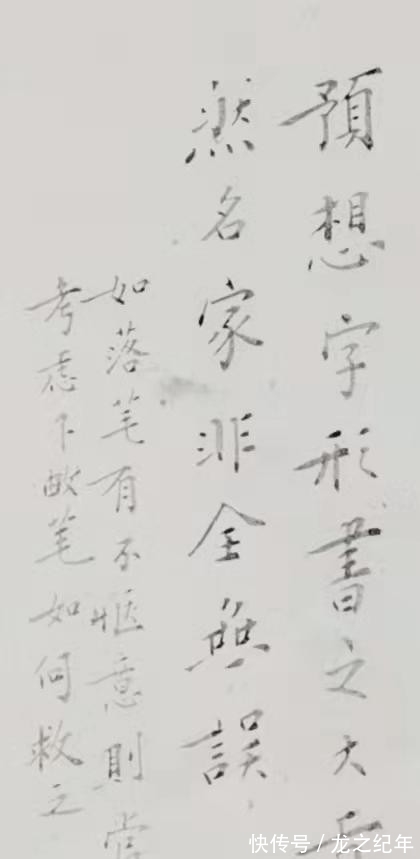 預想字形書之大
然名家非全無誤
如落笔有不惬意則
考慮下笔如何救之
快传号/龙之纪年